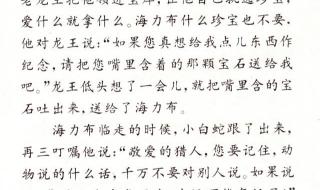 爱什么就拿什么。海力布什么珍宝也不要,
他对龙王说:“如果您真想给我点儿东西作
纪念,请把您嘴里含着的那颗宝石送给我
吧。”龙王低头想了一会儿,就把嘴里含的宝
石吐出来,送给了海力布。
海力布临走的时候,小白蛇跟了出来,
再三叮嘱他说:“敬爱的猎人,您要记住,动
物说的什么话,千万不要对别人说。如果说